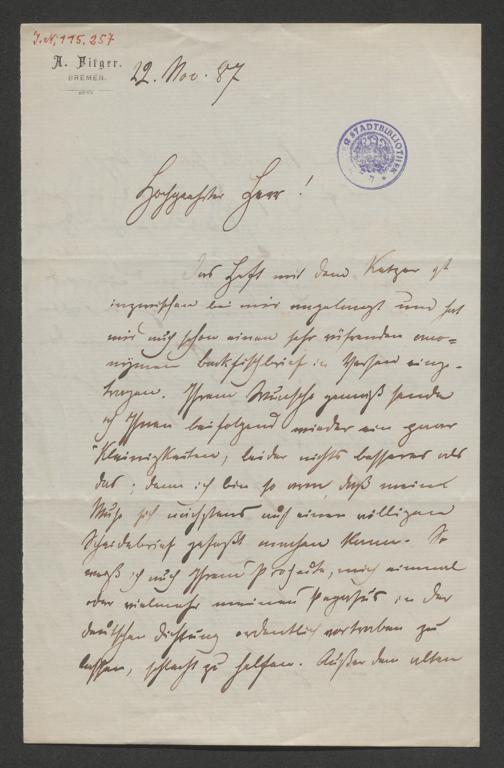 J.N. 115.257
A. Fitger.
BREMEN.
22. Nov. 87
STADTBIBLIOTHEK
Hochgeehrter Herr!
Das Heft mit dem Ketzer ist
inzwischen bei mir angelangt und hat
mir auch schon einen sehr rührenden ano-
nymen Backfischbrief in Versen einge-
tragen. Ihrem Wunsche gemäß sende
ich Ihnen beifolgend wieder ein paar
Kleinigkeiten, leider nichts besseres als
das; denn ich bin so arm, daß meine
Muse sich nächstens auf einen völligen
Scheidebrief gefaßt machen kann. So
weiß ich auch Ihrem Projecte, mich einmal
oder vielmehr meinen Pegasus in der
deutschen Dichtung ordentlich vortraben zu
lassen, schlecht zu helfen. Außer dem alten